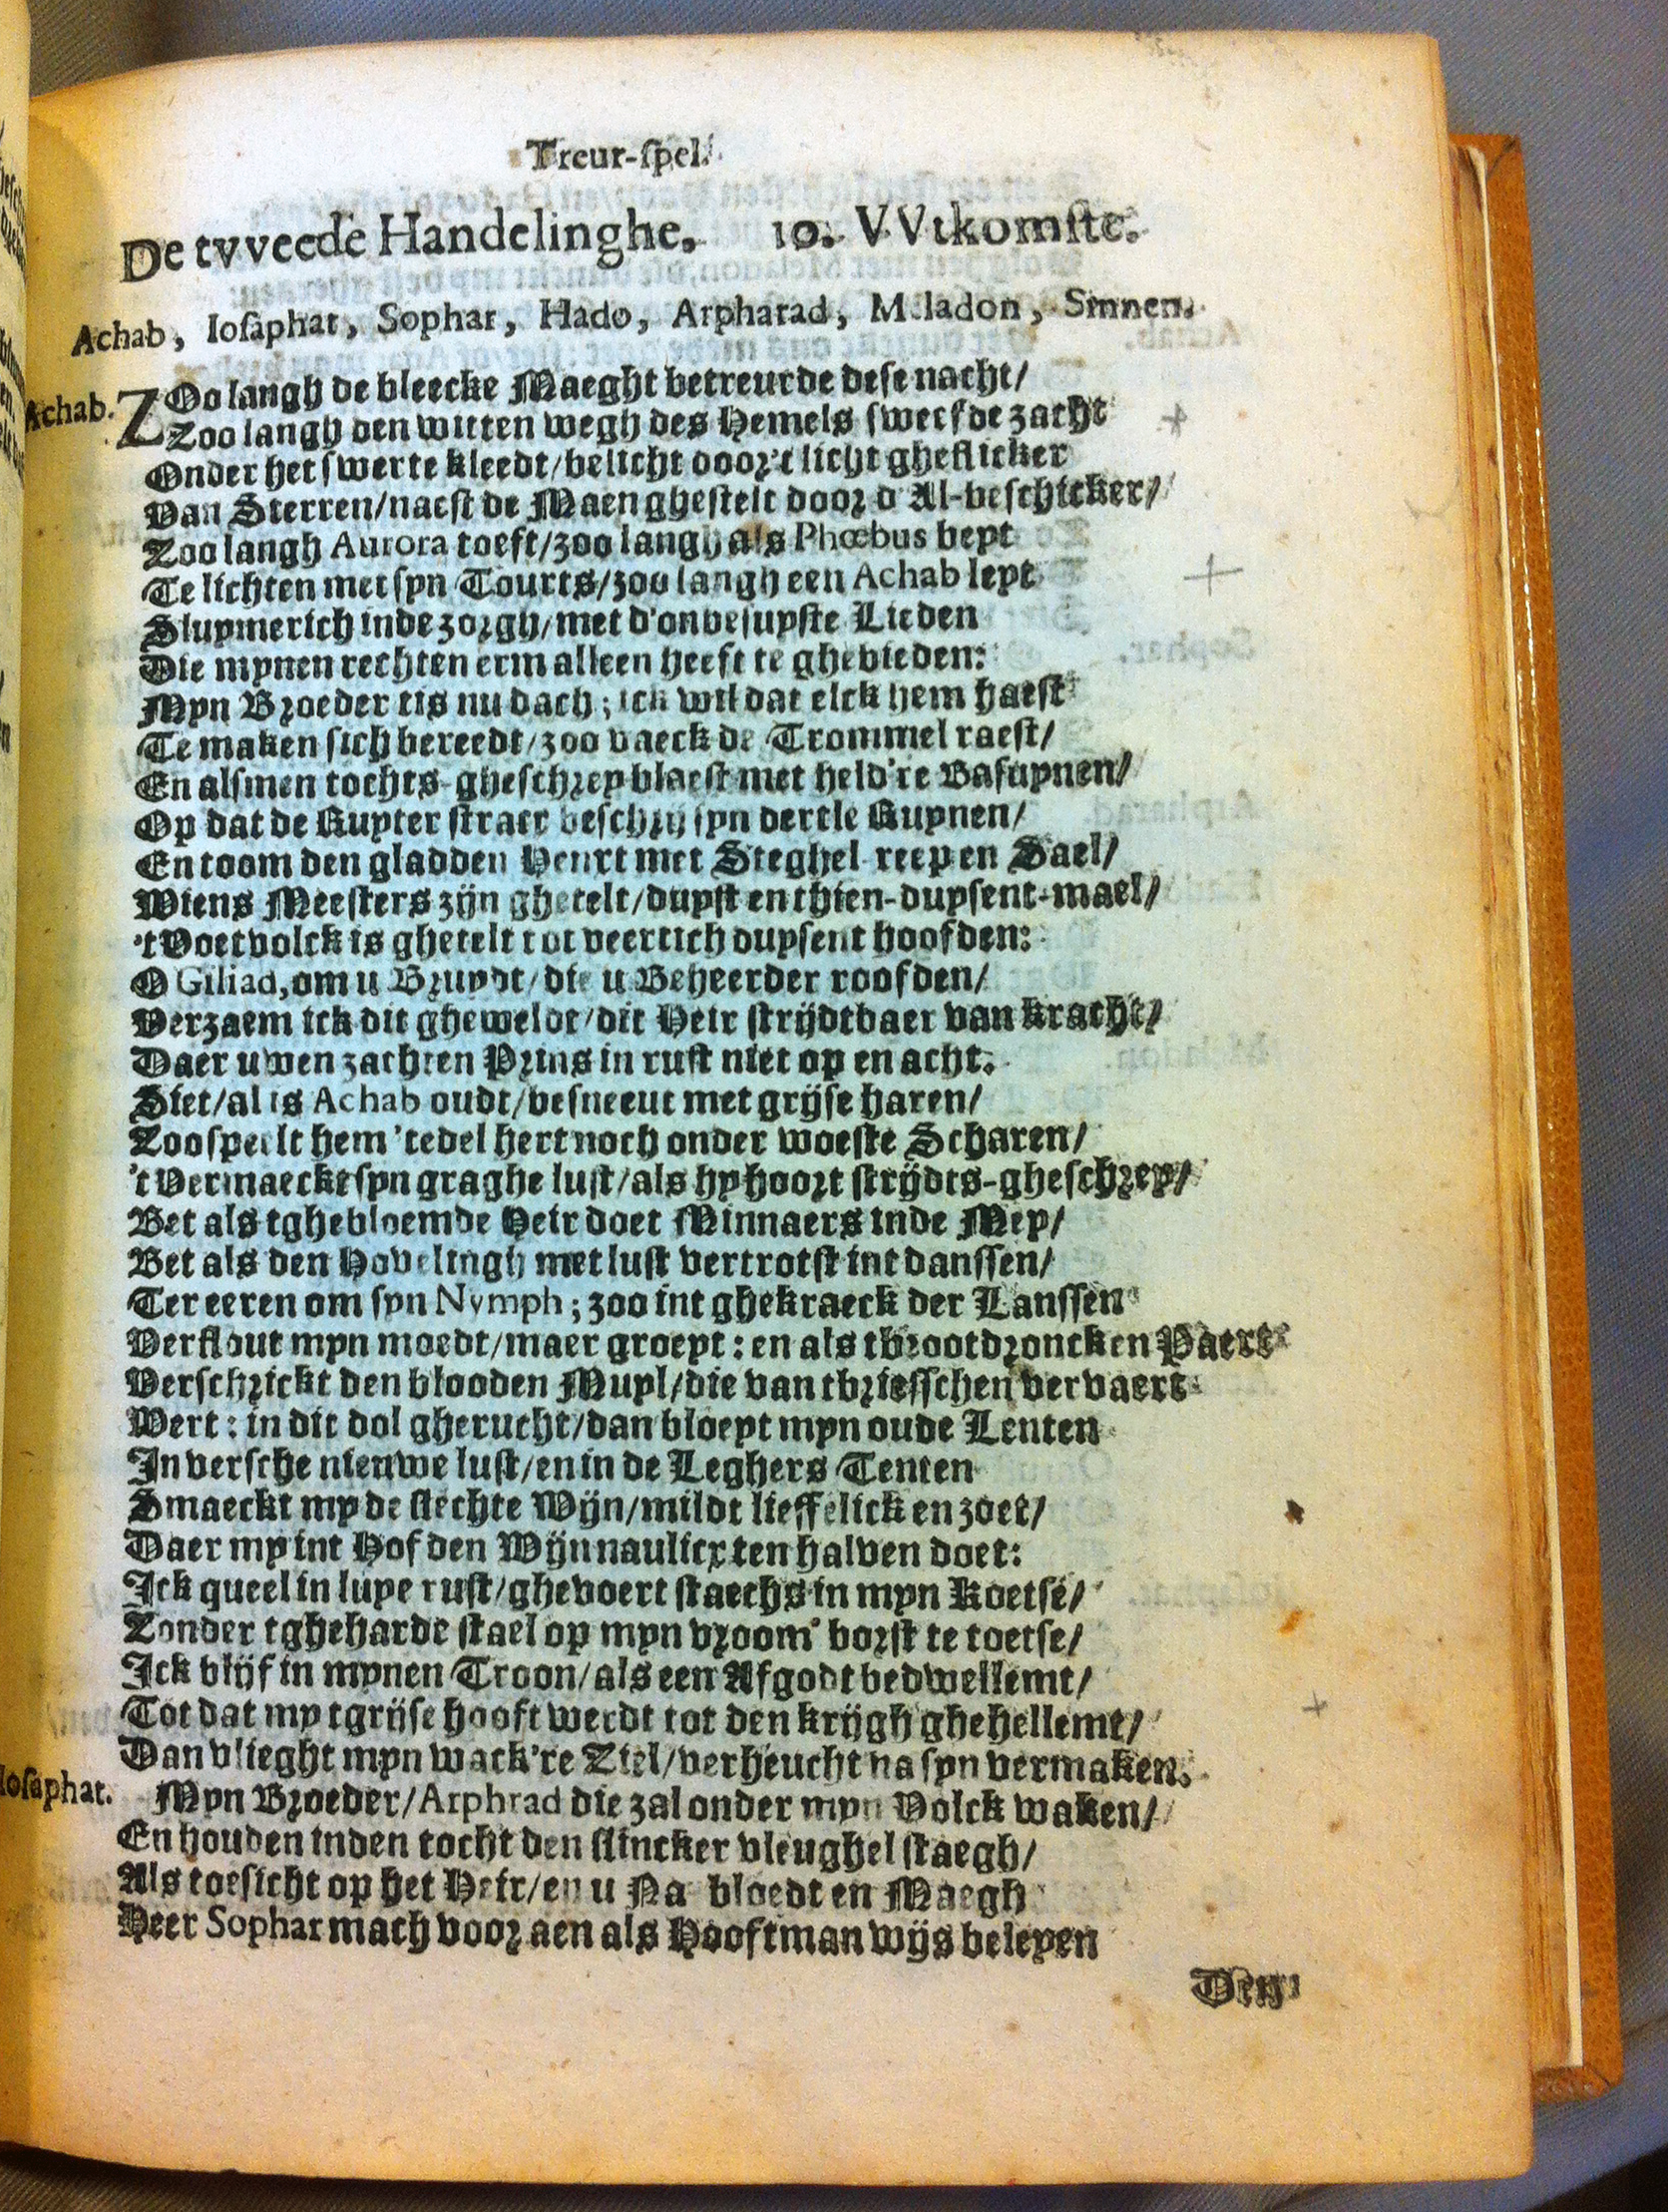 Treur-spel.
De tvveede Handelinghe. 10. VVtkomste.
Achab, Iosaphat, Sophar, Hado, Arpharad, M.ladon, Sinnen.
Achab. ZOo langh de bleecke Maeght betreurde dese nacht/
Zoo langh den witten wegh des Hemels sweefde zacht
Onder het swerte kleedt/belicht door't licht gheflicker
Van Sterren/naest de Maen ghestelt door d'Al-beschicker/
Zoo langh Aurora toeft/zoo langh als Phœbus beyt
Te lichten met syn Tourts/zoo langh een Achab leyt
Sluymerich inde zorgh/met d'onbesuyste Lieden
Die mynen rechten erm alleen heeft te ghebieden:
Myn Broeder tis nu dach; ick wil dat elck hem haest
Te maken sich bereedt/zoo vaeck de Trommel raest/
En alsmen tochts-gheschrey blaest met held're Basuynen/
Op dat de Ruyter straet beschry syn dertle Ruynen/
En toom den gladden Henxt met Steghel-reep en Sael/
Wiens Meesters zijn ghetelt/duyst en thien-duysent-mael/
't Voetvolck is ghetelt tot veertich duysent hoofden:
O Giliad, om u Bruydt/die u Beheerder roofden/
Verzaem ick dit gheweldt/dit Heir strijdtbaer van kracht/
Daer uwen zachten Prins in rust niet op en acht.
Siet/al is Achab oudt/besneeut met grijse haren/
Zoo speelt hem 't edel hert noch onder woeste Scharen/
't Vermaeckt syn graghe lust/als hy hoort strijdts-gheschrey/
Bet als tghebloemde Heir doet Minnaers inde Mey/
Bet als den Hovelingh met lust vertrotst int danssen/
Ter eeren om syn Nymph; zoo int ghekraeck der Lanssen
Verflout myn moedt/maer groeyt: en als tbrootdroncken Paert
Verschrickt den blooden Muyl/die van tbriesschen vervaert
Wert: in dit dol gherucht/dan bloeyt myn oude Lenten
In versche nieuwe lust/en in de Leghers Tenten
Smaeckt my de slechte Wijn/mildt lieffelick en zoet/
Daer my int Hof den Wijn naulicx ten halven doet:
Ick queel in luye rust/ghevoert staechs in myn Koetse/
Zonder tgheharde stael op myn vroom' borst te toetse/
Ick blijf in mynen Troon/als een Afgodt bedwellemt/
Tot dat my tgrijse hooft werdt tot den krijgh ghehellemt/
Dan vlieght myn wack're Ziel/verheucht na syn vermaken.
Iosaphat. Myn Broeder/Arphrad die zal onder myn Volck waken/
En houden inden tocht den slincker vleughel staegh/
Als toesicht op het Heir/en u Na bloedt en Maegh
Heer Sophar mach voor aen als Hooftman wijs beleyen
Den